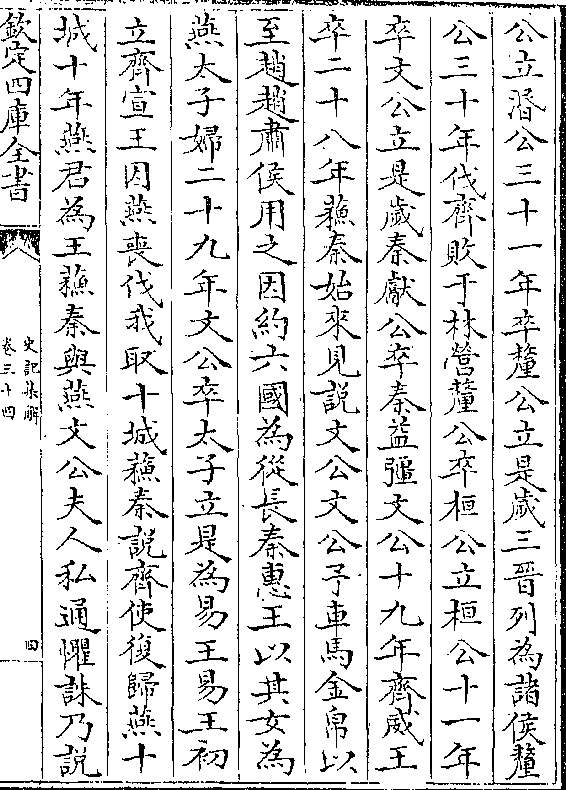 公立湣公三十一年卒釐公立是歲三晉列為諸侯釐
公三十年伐齊敗于林營釐公卒桓公立桓公十一年
卒文公立是歲秦獻公卒秦益彊文公十九年齊威王
卒二十八年蘓秦始來見説文公文公予車馬金帛以
至趙趙肅侯用之因約六國為從長秦惠王以其女為
燕太子婦二十九年文公卒太子立是為易王易王初
立齊宣王因燕喪伐我取十城蘓秦説齊使復歸燕十
城十年燕君為王蘓秦與燕文公夫人私通懼誅乃説
欽定四庫全書
史記集解
卷三十四
四